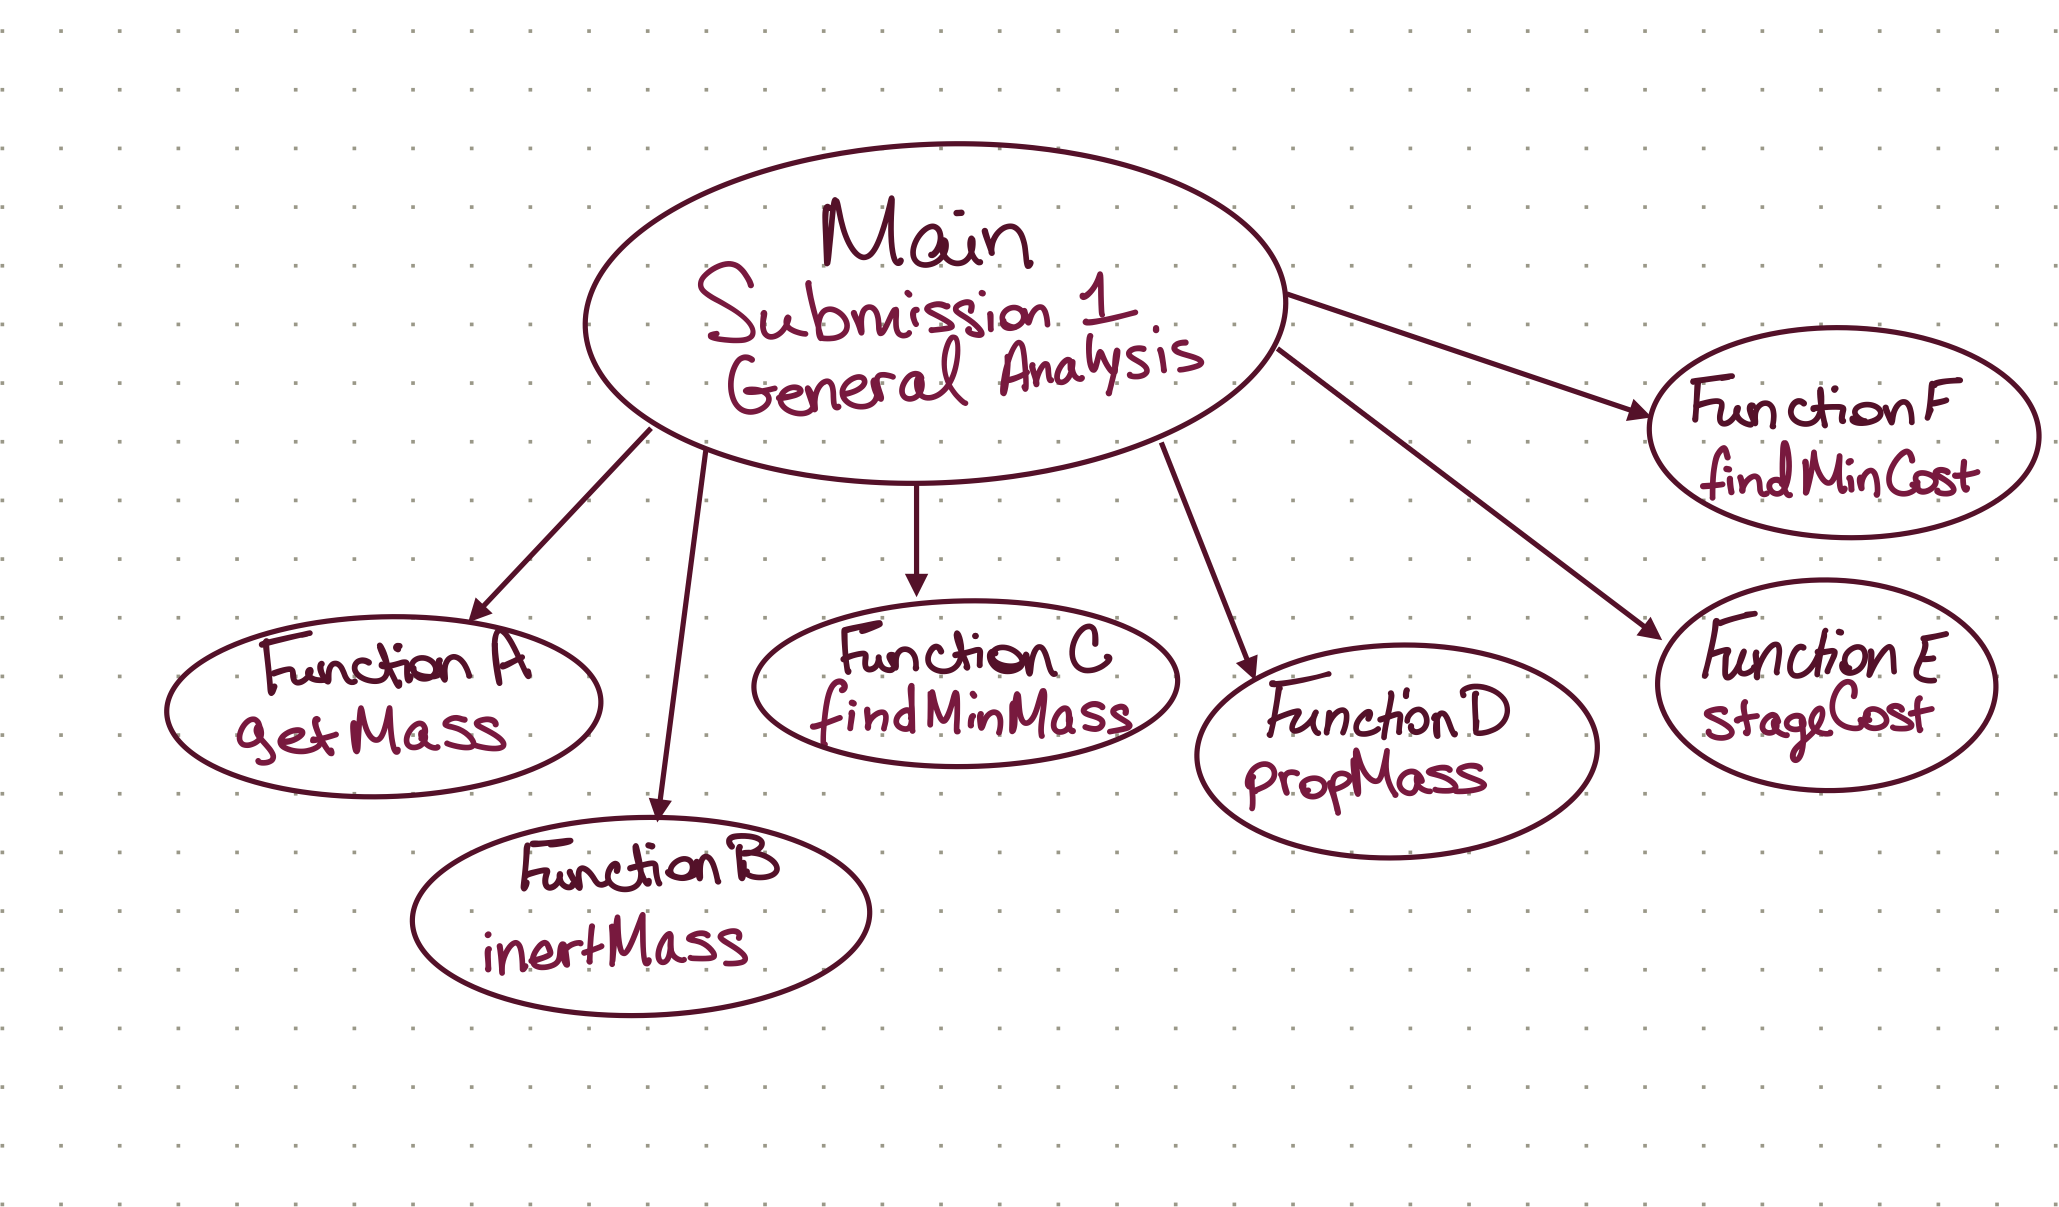 Main
Submission 1
General Analysis
Function A
getMass
Function B
inertMass
Function C
findMinMass
Function D
propMass
Function E
stageCost
Function F
findMinCost